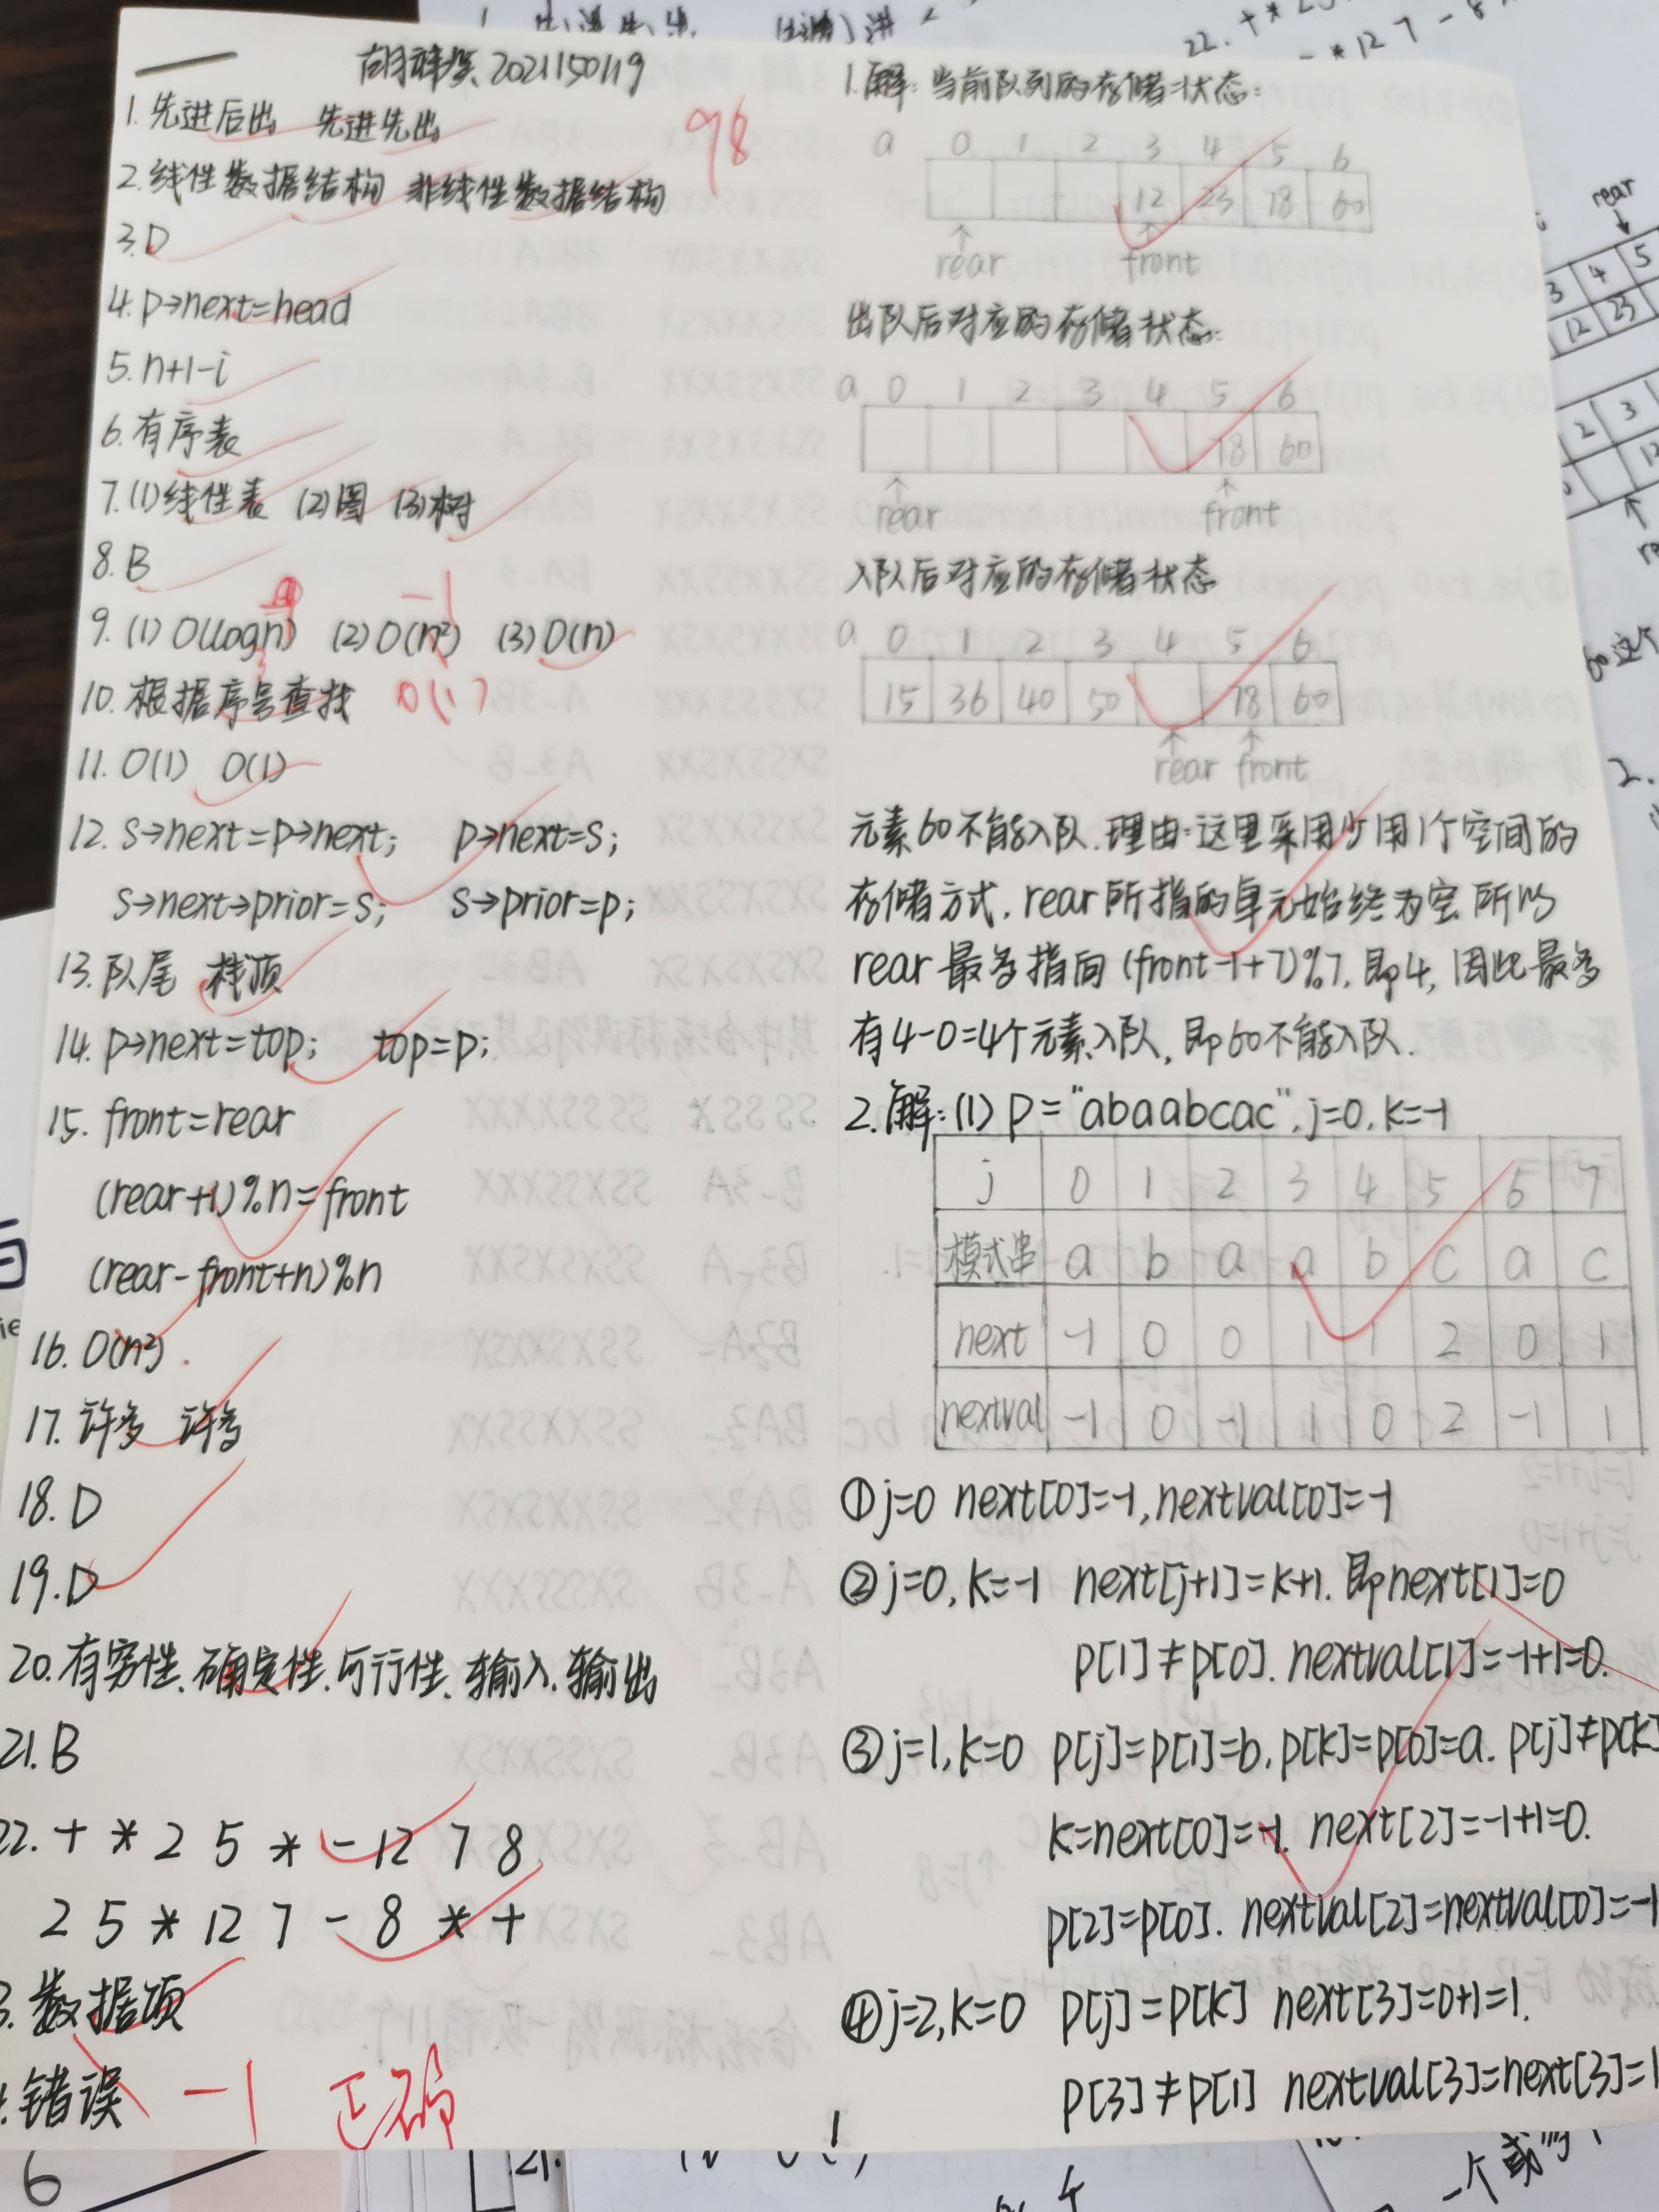 一
2021150119
98
1.先进后出 先进先出
2.线性数据结构 非线性数据结构
3.D
4.p→next=head
5.n+1-i
6.有序表
7.(1)线性表 (2)图 (3)树
8.B
-1
9.(1)O(logn) (2)O(n²) (3)O(n)
10.根据序号查找 O(1)
11.O(1) O(1)
12.s→next=p→next; p→next=s;
s→next→prior=s; s→prior=p;
13.队尾 栈顶
14.p→next=top; top=p;
15.front=rear
(rear+1)%n=front
(rear-front+n)%n
16.O(n²).
17.许多 许多
18.D
19.D
20.有穷性、确定性、可行性、输入、输出
21.B
22.+*25*-1278
25*127-8*+
3.数据项
错误 -1 正确
1.解:当前队列的存储状态:
a 0 1 2 3 4 5 6
12 23 78 60
rear front
出队后对应的存储状态:
a 0 1 2 3 4 5 6
78 60
rear front
入队后对应的存储状态
a 0 1 2 3 4 5 6
15 36 40 50 78 60
rear front
元素60不能入队.理由:这里采用少用1个空间的
存储方式,rear所指的单元始终为空.所以
rear最多指向(front-1+7)%7,即4,因此最多
有4-0=4个元素入队,即60不能入队.
2.解:(1)p="abaabcac",j=0,k=-1
j 0 1 2 3 4 5 6 7
模式串 a b a a b c a c
next -1 0 0 1 1 2 0 1
nextval -1 0 -1 1 0 2 -1 1
①j=0 next[0]=-1,nextval[0]=-1
②j=0,k=-1 next[j+1]=k+1.即next[1]=0
p[1]≠p[0].nextval[1]=-1+1=0.
③j=1,k=0 p[j]=p[1]=b,p[k]=p[0]=a.p[j]≠p[k]
k=next[0]=-1. next[2]=-1+1=0.
p[2]=p[0]. nextval[2]=nextval[0]=-1
④j=2,k=0 p[j]=p[k] next[3]=0+1=1.
p[3]≠p[1] nextval[3]=next[3]=1
1
22.+*25
-*127-8
rear
3 4 5
12 23
2 3
2.
6
21.